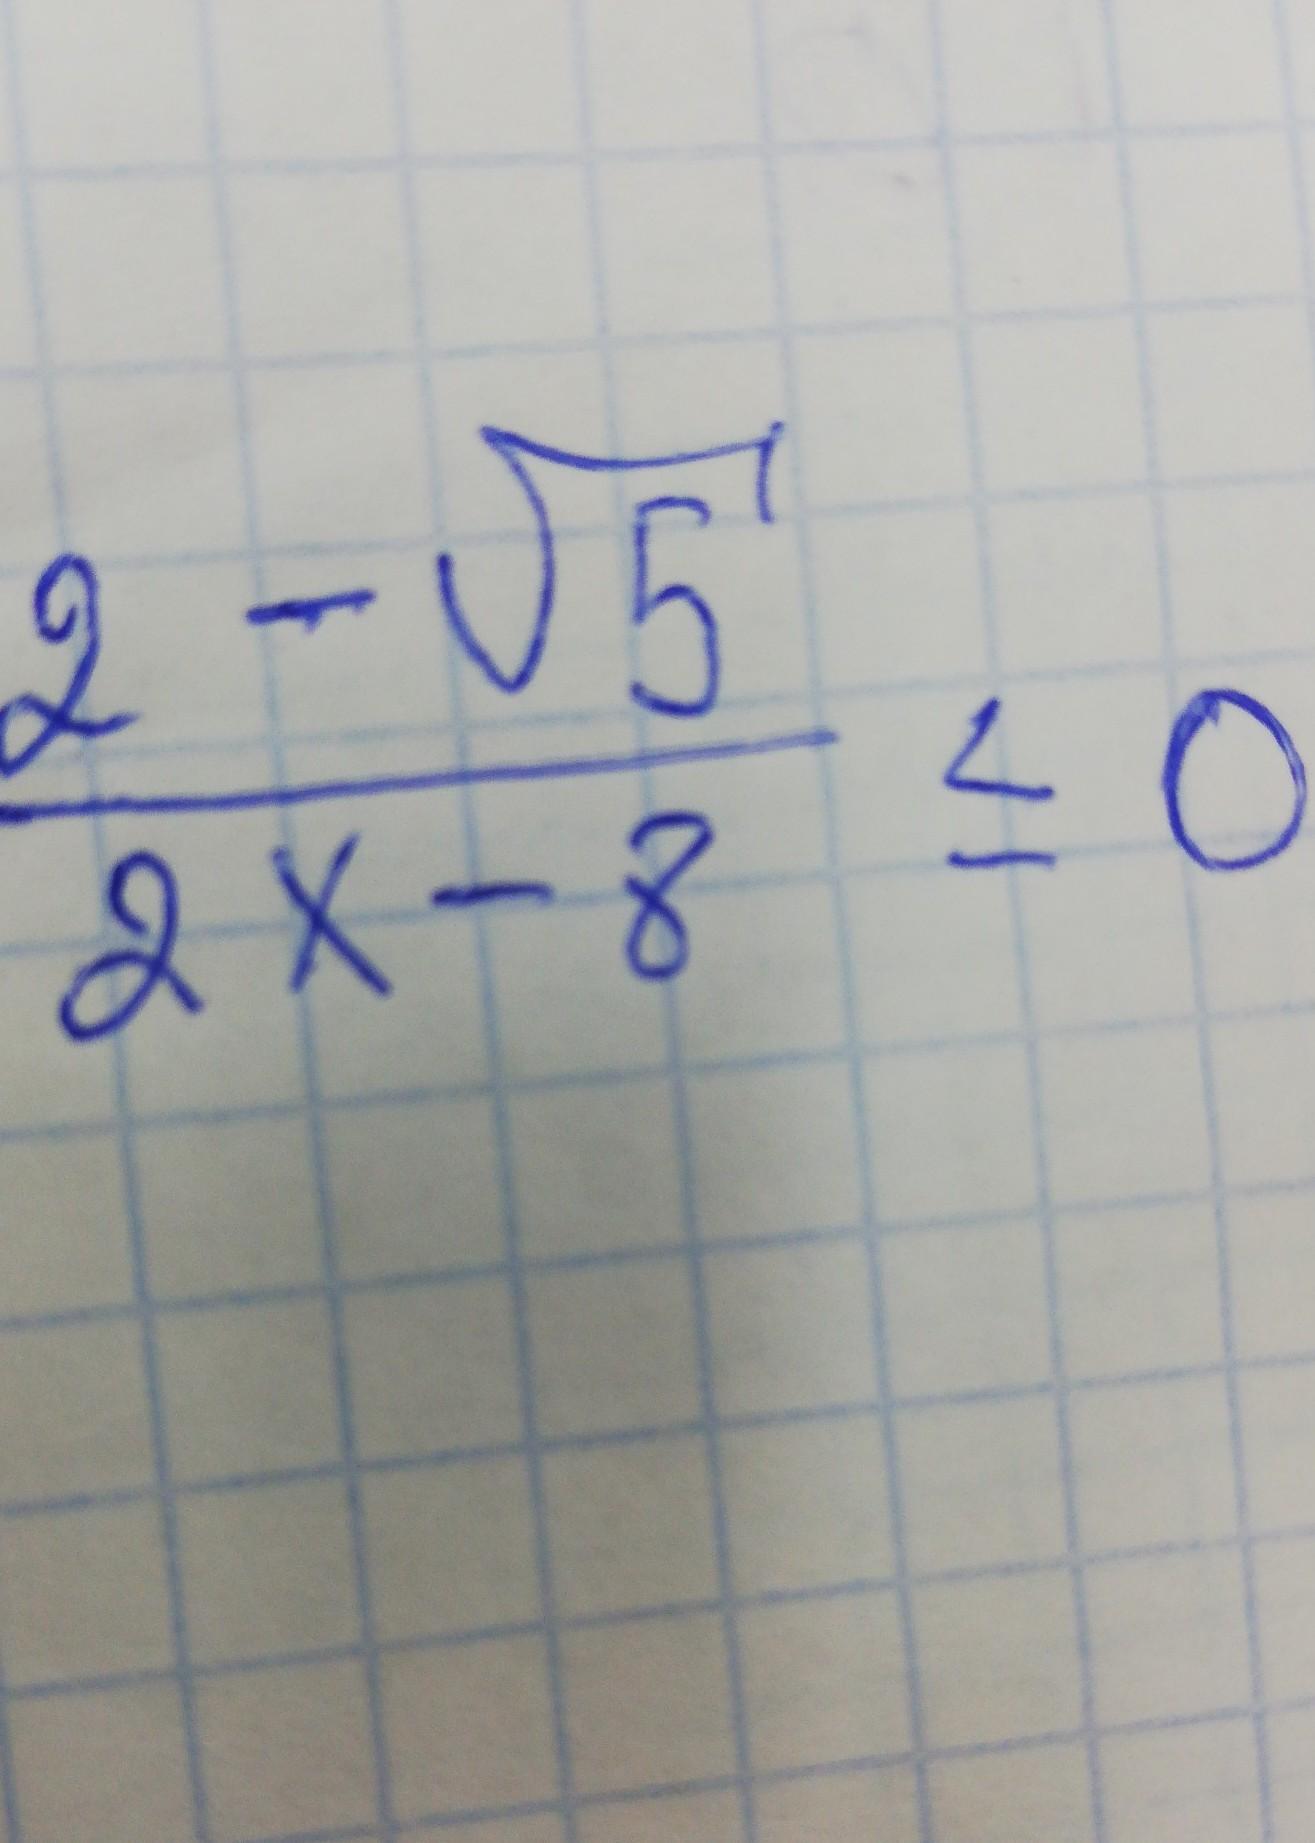 2 - √5
2x - 8 ≤ 0